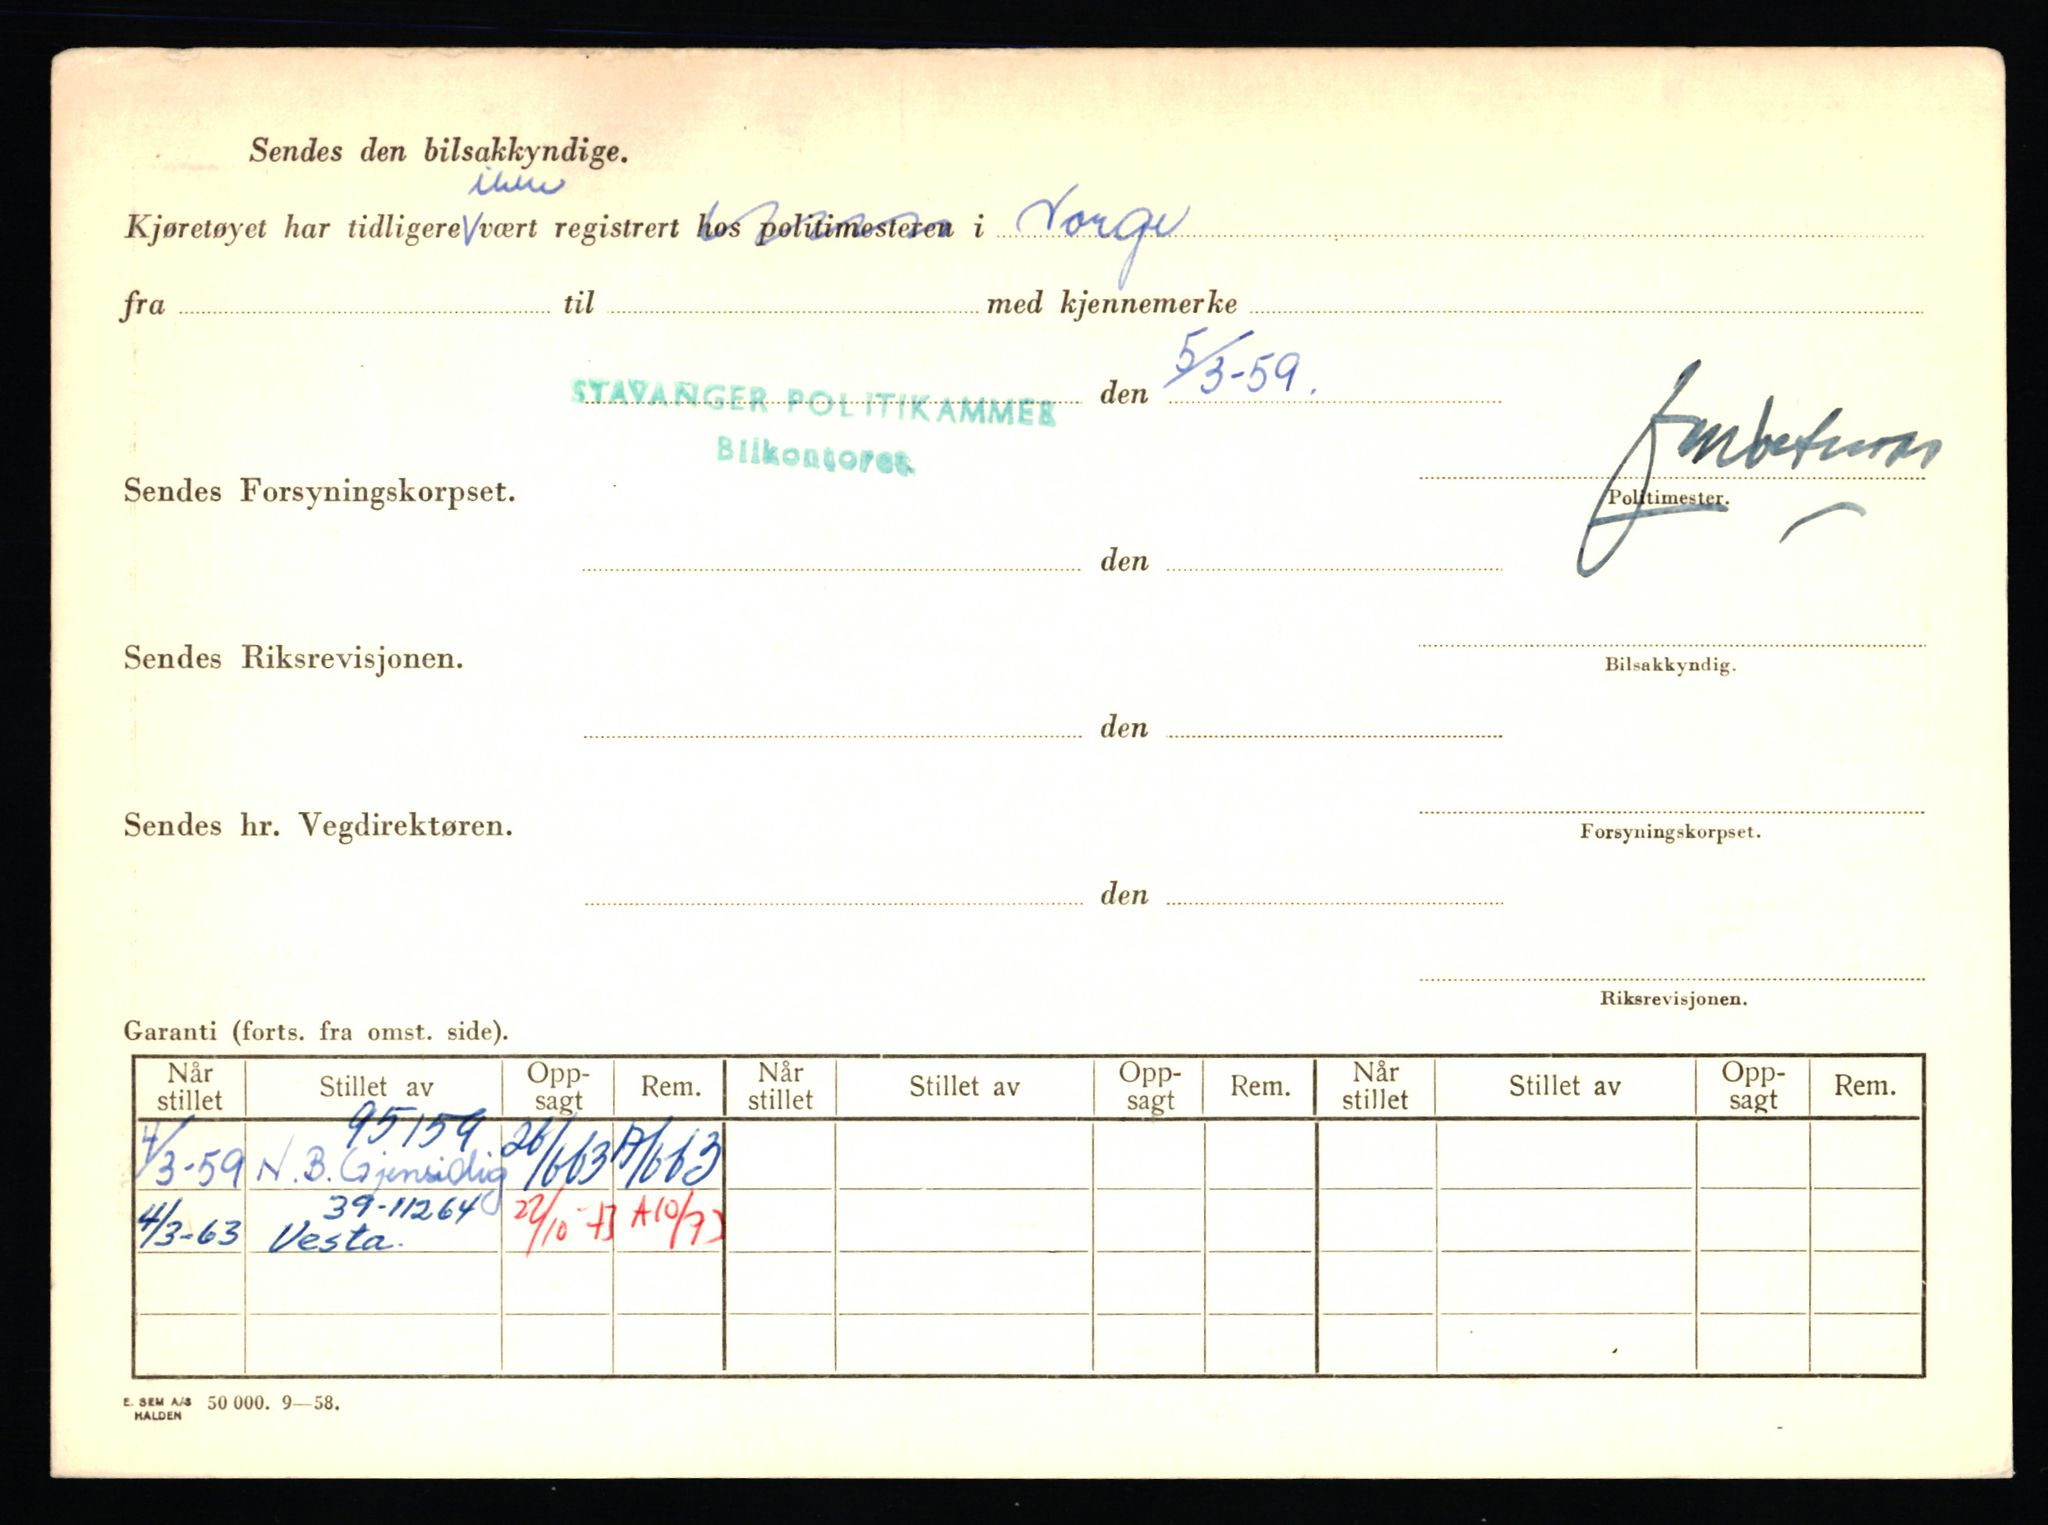 Sendes den bilsakkyndige.
ikke
Kjøretøyet har tidligere V vært registrert hos politimesteren i Norge
fra til med kjennemerke
STAVANGER POLITIKAMMER den 5/3-59.
Bilkontoret.
Sendes Forsyningskorpset.
Politimester.
den
Sendes Riksrevisjonen.
Bilsakkyndig.
den
Sendes hr. Vegdirektøren.
Forsyningskorpset.
den
Riksrevisjonen.
Garanti (forts. fra omst. side).
Når stillet Stillet av Opp-sagt Rem. Når stillet Stillet av Opp-sagt Rem. Når stillet Stillet av Opp-sagt Rem.
95159
4/3-59 N.B. Gjensidig 26/663 A/663
39-11264
4/3-63 Vesta. 22/10-73 A10/73
E. SEM A/S 50 000. 9—58.
HALDEN